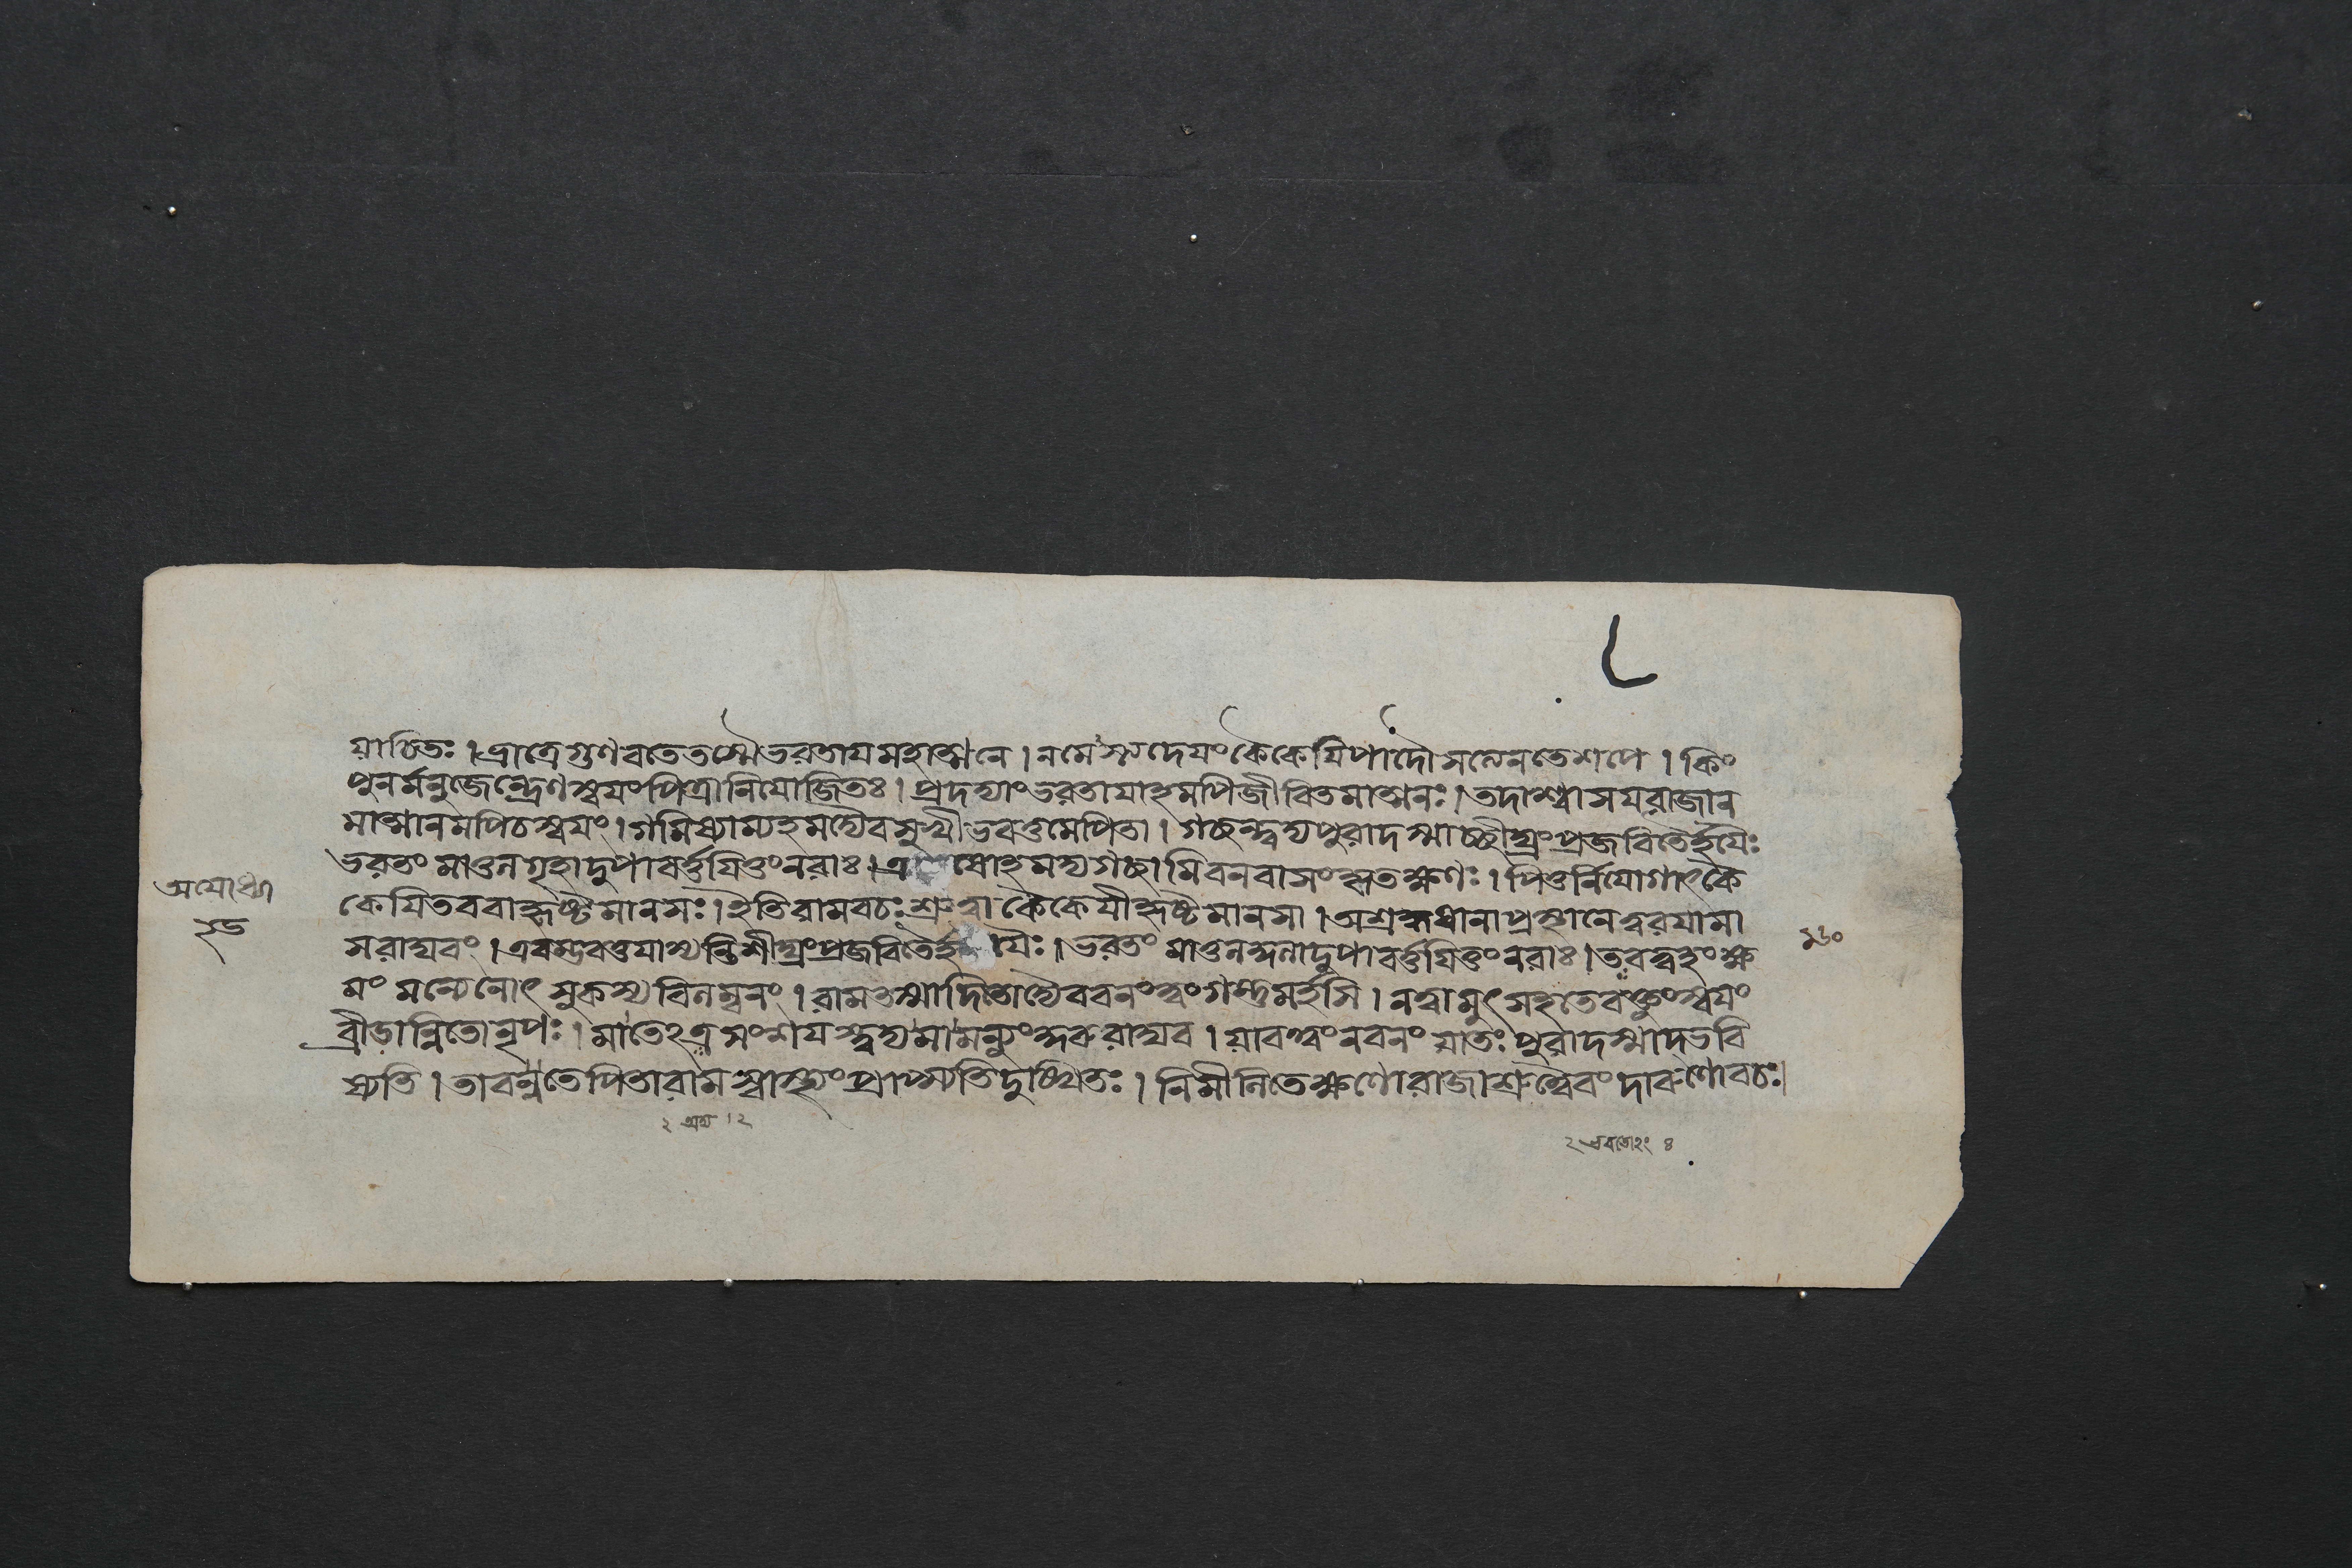 যাচিতঃ । ভ্রাত্রে গুণবতে তস্মৈ ভরতায মহাত্মনে । ন মেস্ত্যদেযং কৈকেযি পাদৌ সত্যেন তে শপে । কিং
পুনর্মনুজেন্দ্রেণ স্বযং পিত্রা নিযোজিতঃ । প্রদদ্যাং ভরতাযাহমপি জীবিতমাত্মনঃ । তদাশ্বাসয রাজান
মাত্মানমপি চ স্বযং । গমিষ্যাম্যহমদ্যৈব সুখী ভবতু মে পিতা । গচ্ছন্ত্বদ্য পুরাদস্মাচ্ছীঘ্রং প্রজবিতৈর্হযৈঃ
ভরতং মাতুলগৃহাদুপাবর্ত্তযিতুং নরাঃ । এ ষোহমদ্য গচ্ছামি বনবাসং কৃতক্ষণঃ । পিতুর্নিযোগাৎ কৈ
কেযি তব বা হৃষ্টমানসঃ । ইতি রামবচঃ শ্রুত্বা কৈকেযী হৃষ্টমানসা । অশ্রদ্দধানা প্রস্থানে ত্বরযামা
স রাঘবং । এবম্ভবতু যাস্যন্তি শীঘ্রং প্রজবিতৈর্হযৈঃ । ভরতং মাতুলকুলাদুপাবর্ত্তযিতুং নরাঃ । তব ত্বহং ক্ষ
মং মন্যে নোৎসুকস্য বিলম্বনং । রাম তস্মাদিতোদ্যৈব বনং ত্বং গন্তুমর্হসি । ন ত্বামুৎসহতে বক্তুং স্বযং
ব্রীডান্বিতো নৃপঃ । মা তেঽত্র সংশযস্ত্বদ্য মা মন্যুং কুরু রাঘব । যাবত্ত্বং ন বনং যাতঃ পুরাদস্মাদ্ভবি
ষ্যতি । তাবন্ন তে পিতা রাম স্বাস্থ্যং প্রাপ্স্যতি দুঃখিতঃ । নিমীলিতেক্ষণো রাজা শ্রুত্বৈবং দারুণো বচঃ ।
অযোধ্যা
১৬০